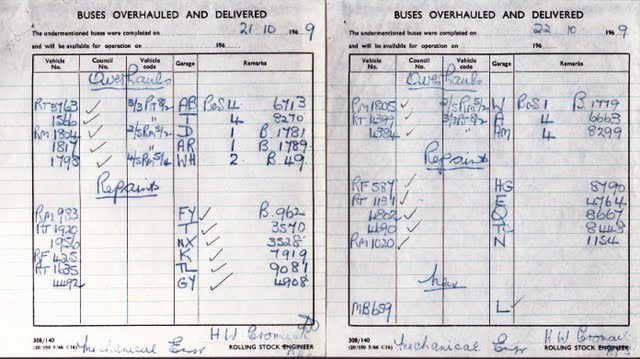 BUSES OVERHAULED AND DELIVERED
The undermentioned buses were completed on 21 10 196 9
and will be available for operation on 196
Vehicle No. Council No. Vehicle code Garage Remarks
Overhauls
RT3763 ✓ 3/3RT8/2 AB BoS 4 6713
1566 ✓ " T 4 8270
RM1804 ✓ 2/5RM3/2 D 1 B.1781
1817 ✓ " AR 1 B.1789
1798 ✓ WH 2 B.49
Repaints
RM983 FY ✓ B.962
RT1920 T ✓ 3570
1956 NX ✓ 3528
RF425 K ✓ 7919
RT1635 TL ✓ 9081
4492 GY ✓ 4908
308/140
Mechanical Engr HW Cromack
ROLLING STOCK ENGINEER
BUSES OVERHAULED AND DELIVERED
The undermentioned buses were completed on 22 10 196 9
and will be available for operation on 196
Vehicle No. Council No. Vehicle code Garage Remarks
Overhauls
RM1805 ✓ 2/5RM3/2 W BoS 1 B.1779
RT4399 ✓ 3/3RT8/2 A 4 6663
4384 ✓ " AM 4 8299
Repaints
RF587 ✓ HG 8790
RT1137 ✓ E 4764
4802 ✓ Q 8667
4490 ✓ TC 8448
RM1020 ✓ N 1154
New
MB659 L ✓
308/140
Mechanical Engr HW Cromack
ROLLING STOCK ENGINEER